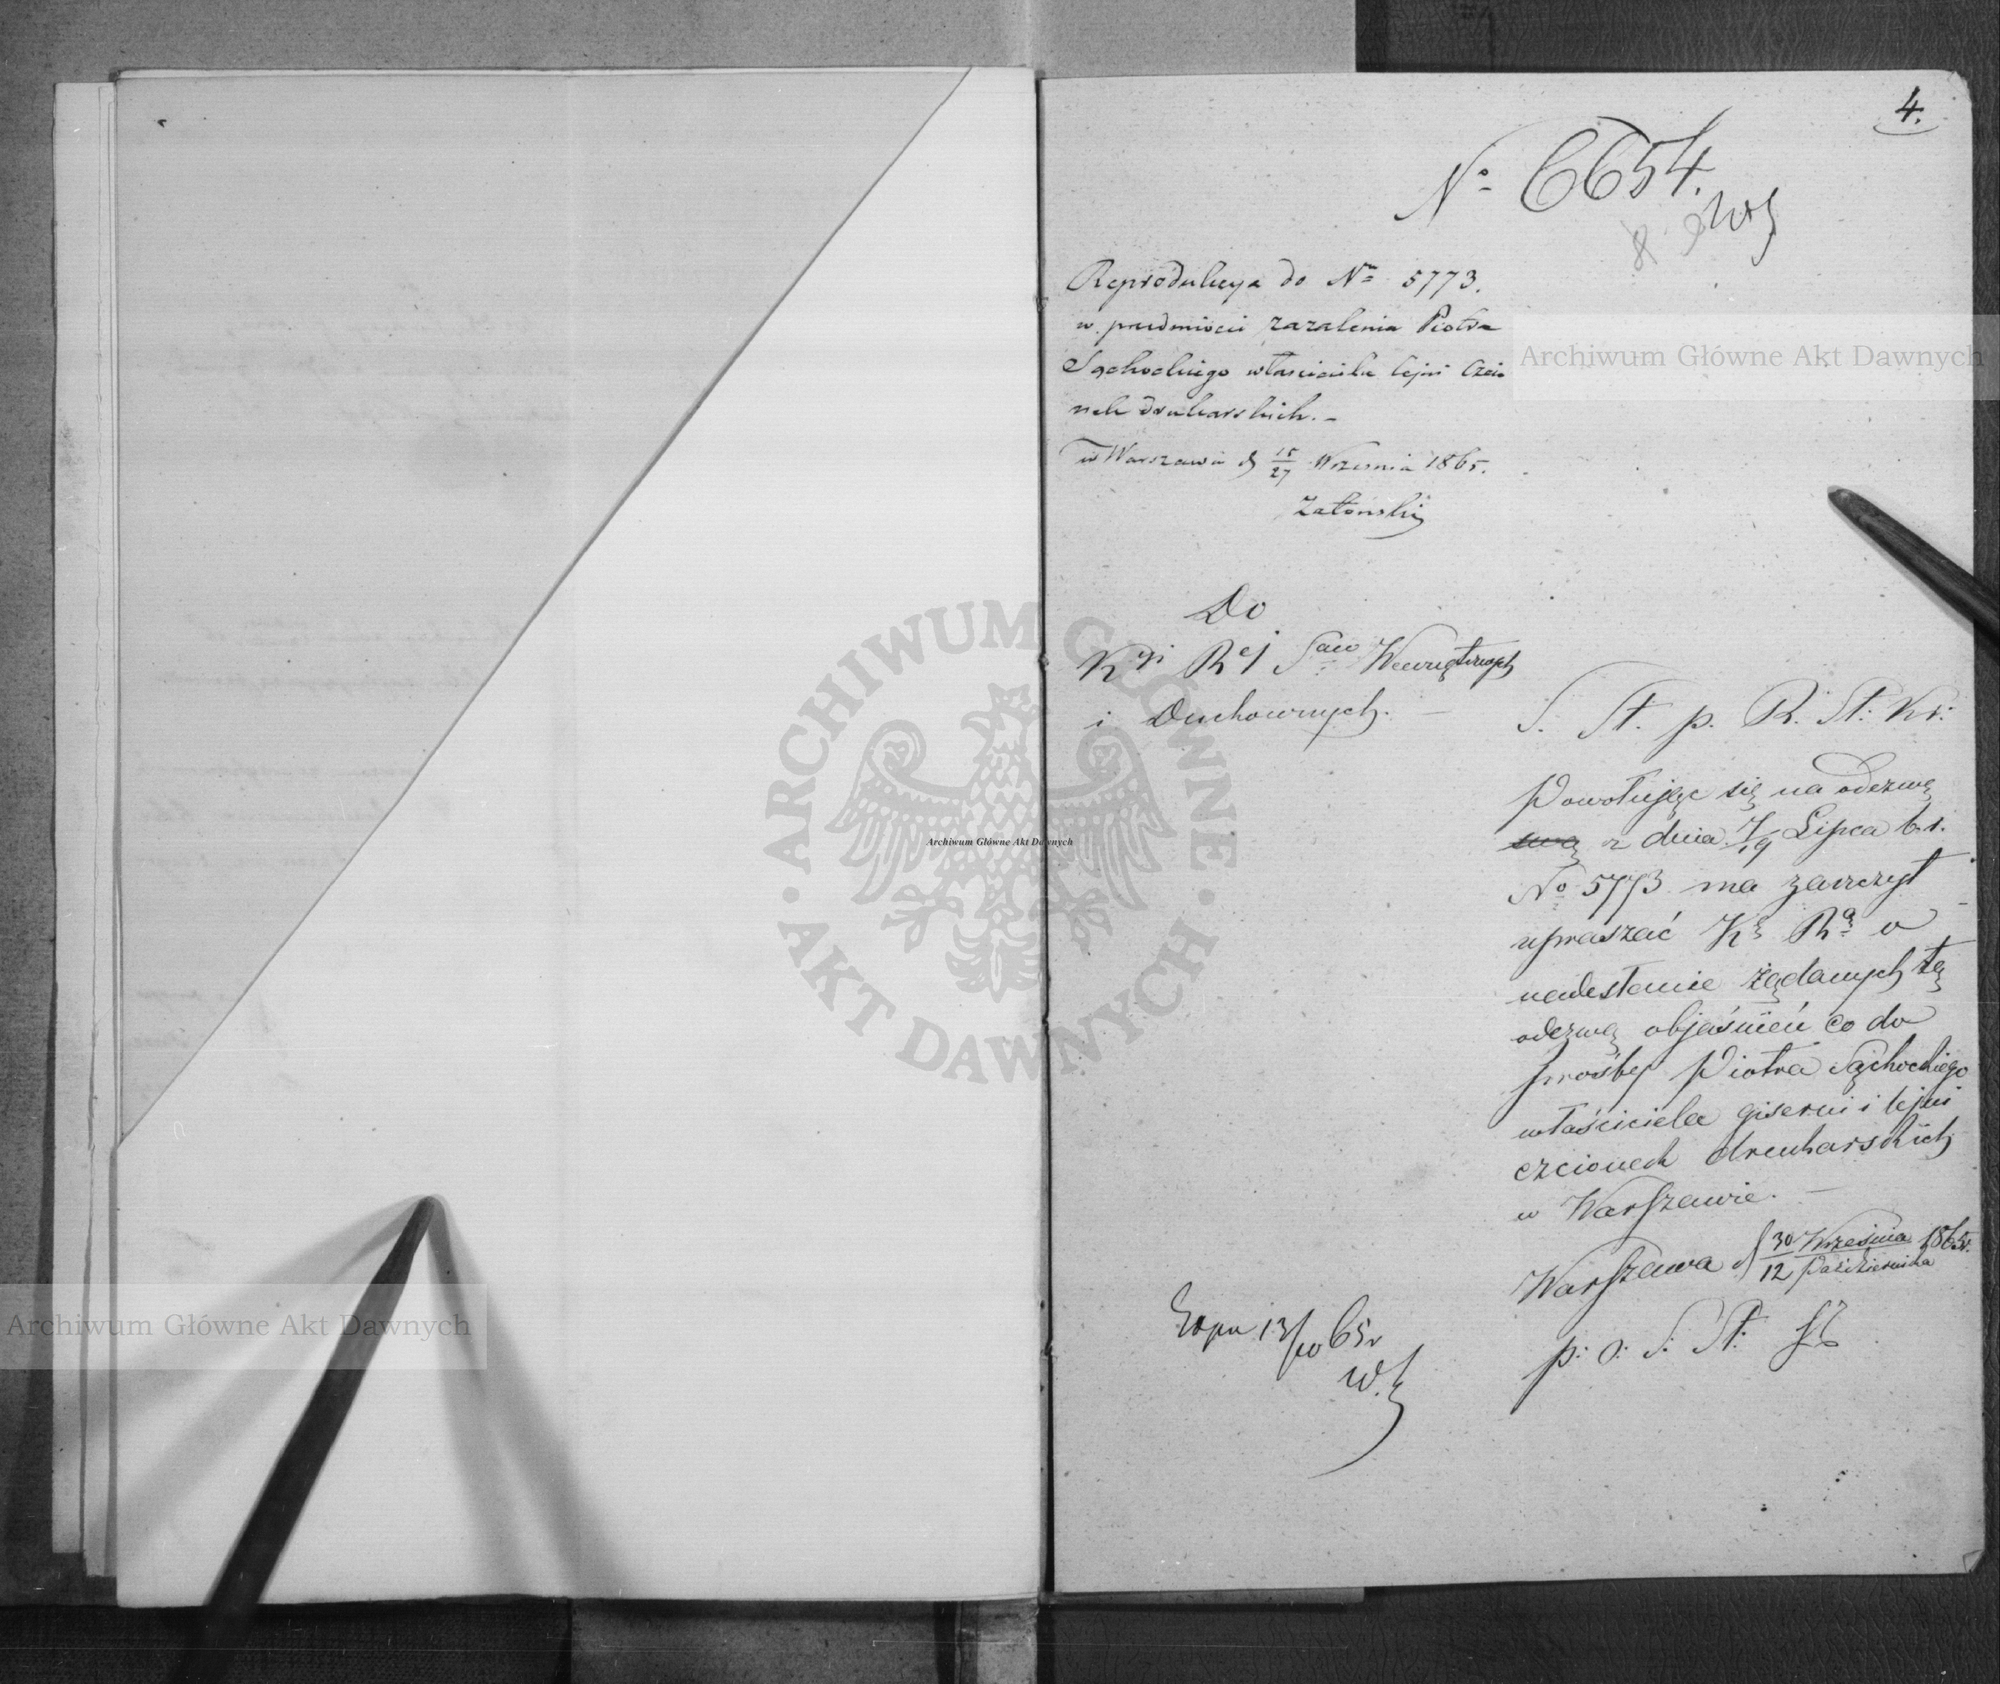 4.
Nº 6654.
Reprodukcya do Nru 5773.
w przedmiocie zażalenia Piotra
Sąchockiego właściciela lejni Czcio
nek drukarskich. –
w Warszawie d 15/27 Września 1865.
Zatoński
Do
Kyi Rej Spraw Wewnętrznych
i Duchownych. –
S. St. p. R. St. Kr:
Powołując się na odezwę
swą z dnia 7/19 Lipca b.r.
No 5773 ma zaszczyt
upraszać Kę Rą o
nadesłanie żądanych tą
odezwą objaśnień co do
prośby Piotra Sąchockiego
właściciela giserni i lejni
czcionek drukarskich
w Warszawie. –
Warszawa d 30 Września / 12 Października 1865r.
p: o: S: St:
13/10 65r
Archiwum Główne Akt Dawnych
Archiwum Główne Akt Dawnych
Archiwum Główne Akt Dawnych
· ARCHIWUM GŁÓWNE · AKT DAWNYCH